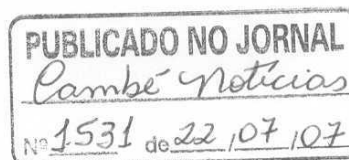 PUBLICADO NO JORNAL
Cambé Notícias
Nº 1.531 de 22/07/07